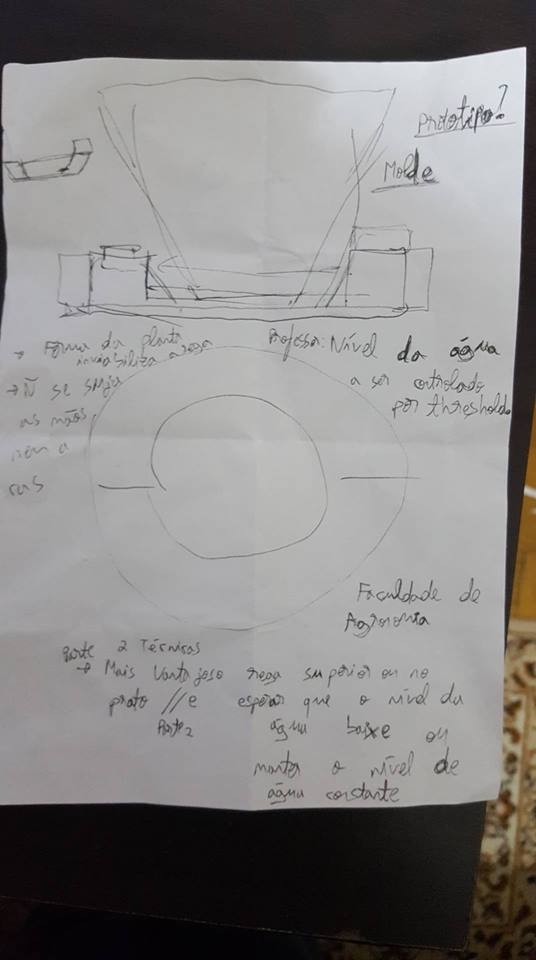 Prototipo?
Molde
→ Forma da planta
inviabiliza a rega
→ Ñ se suja
as mãos
nem a
casa
Professor: Nível da água
a ser controlado
por threshold
Faculdade de
Agronomia
Parte 2 Técnicas
→ Mais Vantajoso rega superior ou no
prato // e esperar que o nível da
Parte 2 água baixe ou
manter o nível de
água constante